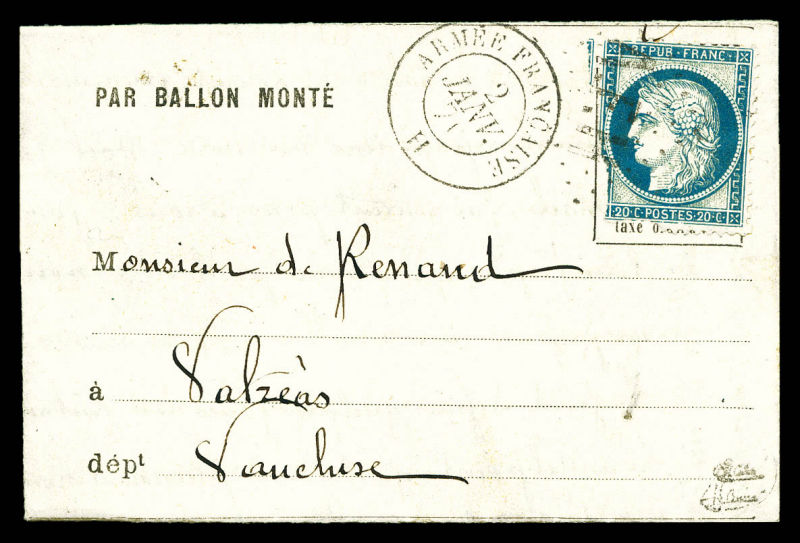 PAR BALLON MONTÉ
ARMÉE FRANÇAISE H
2
JANV.
71
REPUB·FRANC·
20·C·POSTES·20·C·
taxe
Monsieur de Renaud
à Valréas
dépt Vaucluse